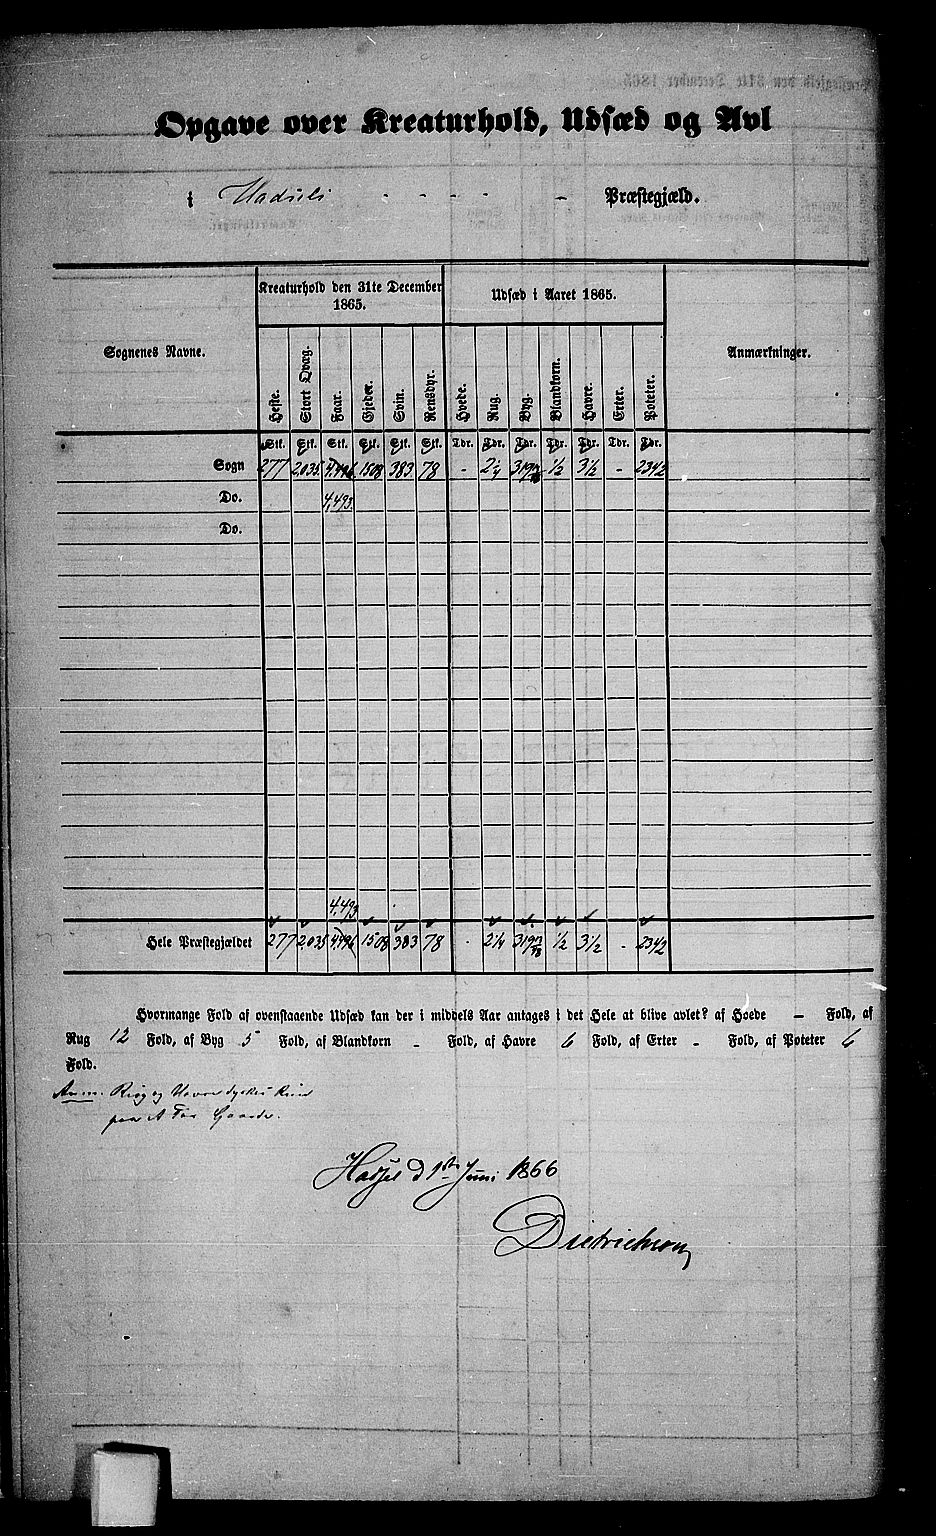 Opgave over Kreaturhold, Udsæd og Avl
i Hadsel - - - - - Præstegjæld.
Sognenes Navne.
Kreaturhold den 31te December 1865.
Udsæd i Aaret 1865.
Anmærkninger.
Heste. Stort Qvæg. Faar. Gjeder. Svin. Rensdyr. Hvede. Rug. Byg. Blandkorn. Havre. Erter. Poteter.
Stk. Stk. Stk. Stk. Stk. Stk. Tdr. Tdr. Tdr. Tdr. Tdr. Tdr. Tdr.
Sogn 277 2035 4,496 1508 383 78 - 2¼ ½ 3½ - 2342
Do. 4,493
Do.
4,493
Hele Præstegjældet 277 2035 4,496 1508 383 78 - 2¼ ½ 3½ - 2342
Hvormange Fold af ovenstaaende Udsæd kan der i middels Aar antages i det Hele at blive avlet? af Hvede - Fold, af
Rug 12 Fold, af Byg 5 Fold, af Blandkorn - Fold, af Havre 6 Fold, af Erter - Fold, af Poteter 6
Fold.
Anm. Rug og Havre dyrkes kun
paa Gaarde.
Hadsel d 1ste Juni 1866
Dietrichson